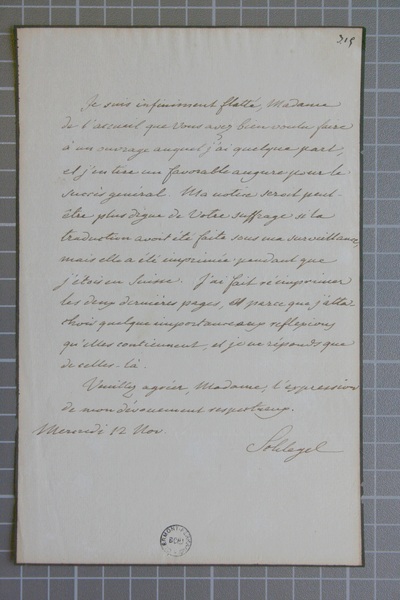 215
Je suis infiniment flatté, Madame
de l'accueil que vous avez bien voulu faire
à un ouvrage auquel j'ai quelque part,
et j'en tire un favorable augure pour le
succès général. Ma notice seroit peut-
être plus digne de votre suffrage si la
traduction avoit été faite sous ma surveillance,
mais elle a été imprimée pendant que
j'étois en Suisse. J'ai fait réimprimer
les deux dernières pages, parce que j'atta-
chois quelque importance aux reflexions
qu'elles contiennent, et je ne réponds que
de celles-là.
Veuillez agréer, Madame, l'expression
de mon dévouement respectueux.
Mercredi 12 Nov.
Schlegel